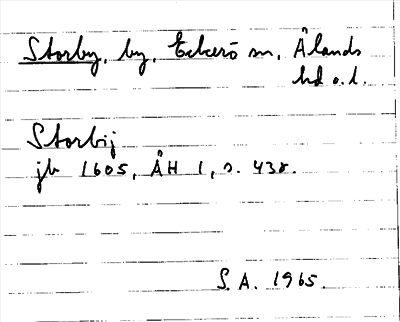 Storby, by, Eckerö sn, Ålands
hd o.l.
Storbij
jb 1605, ÅH 1, s. 438.
S.A. 1965.